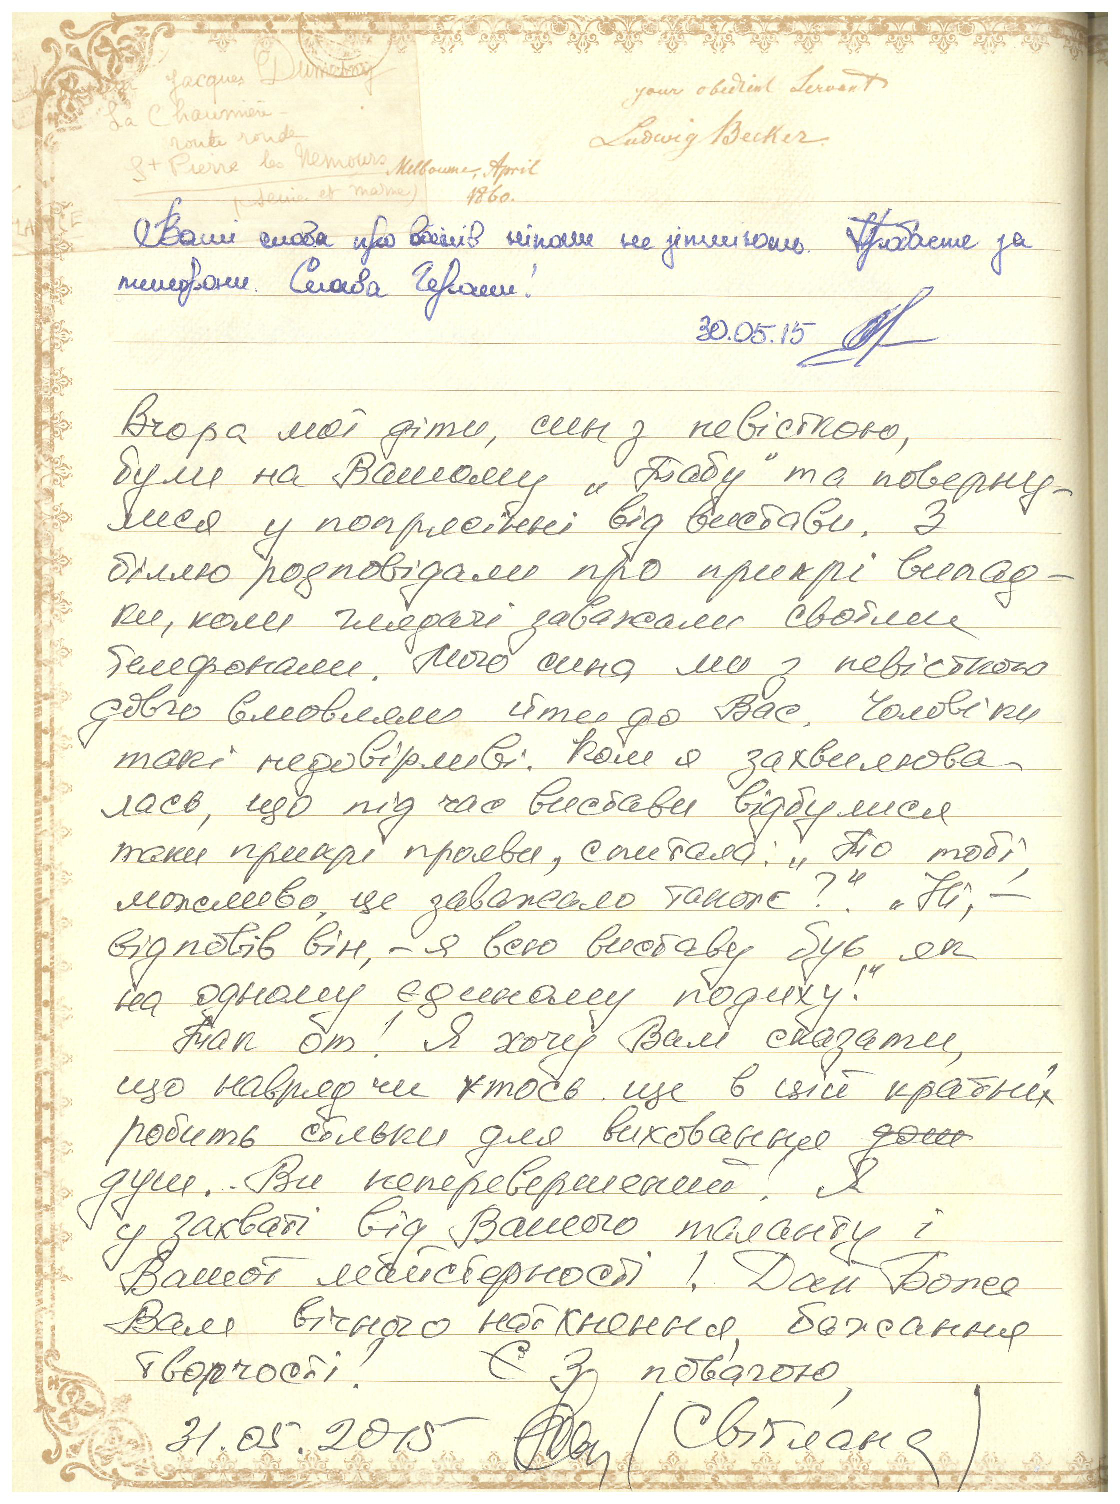 Jacques Dumesny
La Chaumière
route ronde
St Pierre les Nemours
(Seine et Marne)
your obedient Servant
Ludwig Becker.
Melbourne, April
1860.
Ваші слова про воїнів ніколи не зітліють. Пробачте за
телефони. Слава Героям!
30.05.15
Вчора мої діти, син з невісткою,
були на Вашому „Табу" та поверну-
лися у потрясінні від вистави. З
біллю розповідали про прикрі випад-
ки, коли глядачі заважали своїми
телефонами. Мого сина ми з невісткою
довго вмовляли йти до Вас. Чоловіки
такі недовірливі. Коли я захвилюва-
лась, що під час вистави відбулися
таки прикрі прояви, спитала: „То тобі,
можливо, це заважало також?". „Ні, –
відповів він, – я всю виставу був як
на одному єдиному подиху!"
Так от! Я хочу Вам сказати,
що навряд чи хтось ще в цій країні
робить стільки для виховання
душ. Ви неперевершений! Я
у захваті від Вашого таланту і
Вашої майстерності! Дай Боже
Вам вічного натхнення, бажання
творчості! З повагою,
31.05.2015 (Світлана)